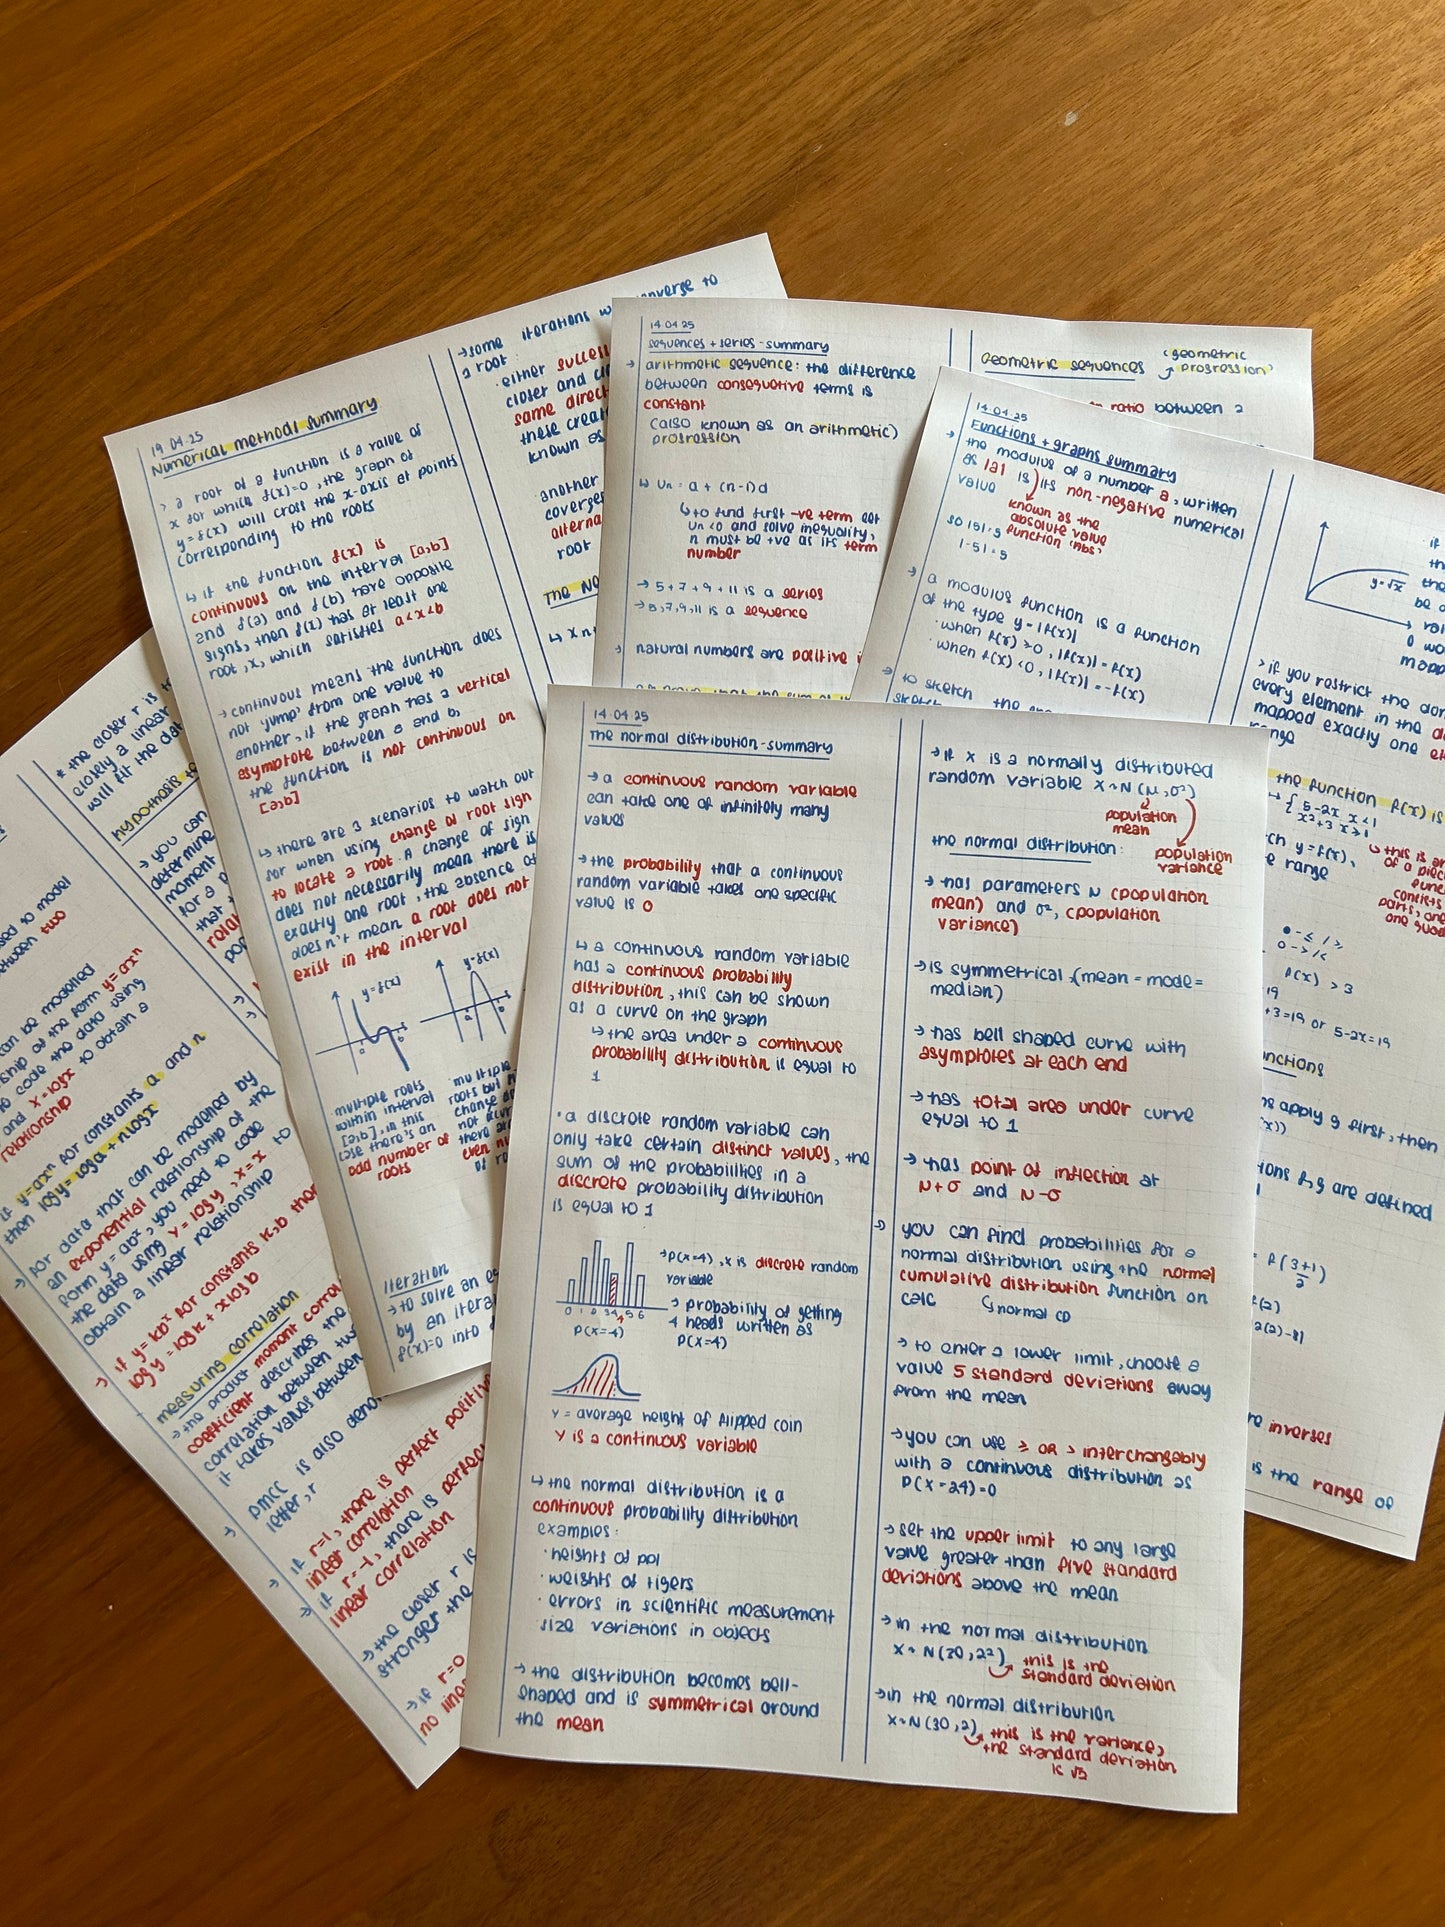 14.04.25
The normal distribution - summary
→ a continuous random variable
can take one of infinitely many
values
→ the probability that a continuous
random variable takes one specific
value is 0
↳ a continuous random variable
has a continuous probability
distribution, this can be shown
as a curve on the graph
↳ the area under a continuous
probability distribution is equal to
1
· a discrete random variable can
only take certain distinct values, the
sum of the probabilities in a
discrete probability distribution
is equal to 1
0 1 2 3 4 5 6
P(X=4)
→ P(X=4), X is discrete random
variable
→ probability of getting
4 heads written as
P(X=4)
Y = average height of flipped coin
Y is a continuous variable
↳ the normal distribution is a
continuous probability distribution
examples:
· heights of ppl
· weights of tigers
· errors in scientific measurement
· size variations in objects
→ the distribution becomes bell-
shaped and is symmetrical around
the mean
→ if X is a normally distributed
random variable X~N(μ,σ²)
population
mean
population
variance
the normal distribution:
→ has parameters μ (population
mean) and σ², (population
variance)
→ is symmetrical (mean = mode =
median)
→ has bell shaped curve with
asymptotes at each end
→ has total area under curve
equal to 1
→ has point of inflection at
μ+σ and μ-σ
→ you can find probabilities for a
normal distribution using the normal
cumulative distribution function on
calc
↳ normal CD
→ to enter a lower limit, choose a
value 5 standard deviations away
from the mean
→ you can use ≥ OR > interchangably
with a continuous distribution as
P(X=24)=0
→ set the upper limit to any large
value greater than five standard
deviations above the mean
→ in the normal distribution
X~N(20,2²)
this is the
standard deviation
→ in the normal distribution
X~N(30,2)
this is the variance,
the standard deviation
is
19.04.25
Numerical methods summary
> a root of a function is a value of
x for which f(x)=0, the graph of
y=f(x) will cross the x-axis at points
corresponding to the roots
↳ if the function f(x) is
continuous on the interval [a,b]
and f(a) and f(b) have opposite
signs, then f(x) has at least one
root, x, which satisfies a<x<b
→ continuous means the function does
not 'jump' from one value to
another, if the graph has a vertical
asymptote between a and b,
the function is not continuous on
[a,b]
↳ there are 3 scenarios to watch out
for when using change of root sign
to locate a root. A change of sign
does not necessarily mean there is
exactly one root, the absence of
doesn't mean a root does not
exist in the interval
y=f(x)
a b
y=f(x)
a b
multiple roots
within interval
[a,b], in this
case there's an
odd number of
roots
multiple
roots but
change
not
there
even
of
Iteration
→ to solve an
by an
f(x)=0 into
→ some iterations converge to
a root
· either
closer and
same
these
known as
· another
root
The
14.04.25
sequences + series - summary
→ arithmetic sequence: the difference
between consequetive terms is
constant
(also known as an arithmetic)
progression
↳ Un = a + (n-1)d
↳ to find first -ve term set
Un<0 and solve inequality,
n must be +ve as its term
number
→ 5+7+9+11 is a series
→ 5,7,9,11 is a sequence
→ natural numbers are positive
Geometric sequences
(geometric
progression)
ratio between 2
14.04.25
Functions + graphs summary
→ the modulus of a number a, written
as |a| is its non-negative numerical
value
known as the
absolute value
function 'Abs'
so |5|=5
|-5|=5
→ a modulus function is a function
of the type y=|f(x)|
· when f(x)≥0, |f(x)|=f(x)
· when f(x)<0, |f(x)|=-f(x)
→ to sketch the
sketch
y=√x
> if you restrict the
every element in the
mapped exactly one
the function f(x) is
5-2x x<1
x²+3 x≥1
y=f(x),
range
f(x) > 3
+3=19 or 5-2x=19
apply g first, then
f,g are defined
f(3+1)
2
inverses
is the range of
* the closer r is
closely a linear
will fit the
hypothesis
→ you can
determine
moment
for a
that
used to model
between two
can be modelled
of the form y=axⁿ
to code the data using
and X=logx to obtain a
relationship
if y=axⁿ for constants a and n
then logy=loga+nlogx
→ for data that can be modelled by
an exponential relationship of the
form y=abˣ, you need to code
the data using Y=logy, X=x to
obtain a linear relationship
→ if y=kbˣ for constants k,b then
logy=logk+xlogb
measuring correlation
→ the product moment
coefficient describes the
correlation between
it takes values between
→ PMCC is also
letter, r
→ if r=1, there is perfect positive
linear correlation
if r=-1, there is
linear correlation
→ the closer r is
stronger the
→ if r=0
no